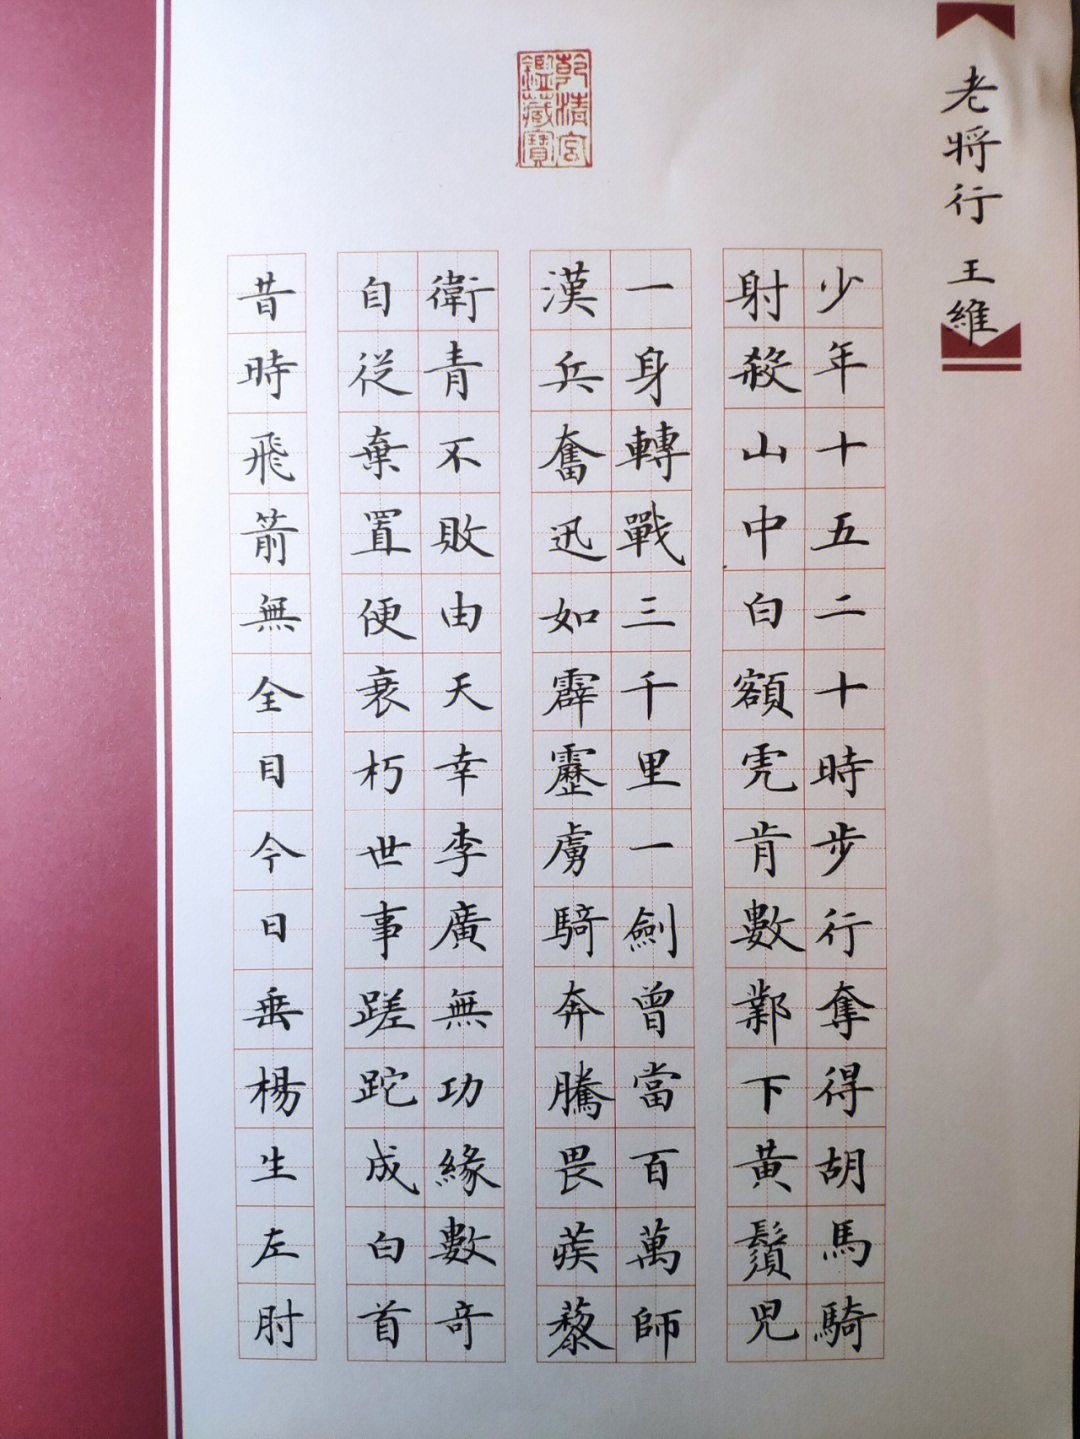 老將行 王維
少年十五二十時步行奪得胡馬騎
射殺山中白額虎肯數鄴下黃鬚兒
一身轉戰三千里一劍曾當百萬師
漢兵奮迅如霹靂虜騎奔騰畏蒺藜
衛青不敗由天幸李廣無功緣數奇
自從棄置便衰朽世事蹉跎成白首
昔時飛箭無全目今日垂楊生左肘
乾清宮
鑑藏寶